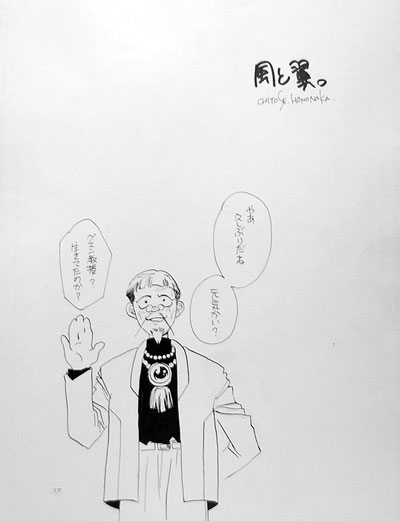 風と翼。
CHITOSE.HONONAKA.
やあ
久しぶりだね
元気かい?
グエン教授?
生きてたのか?